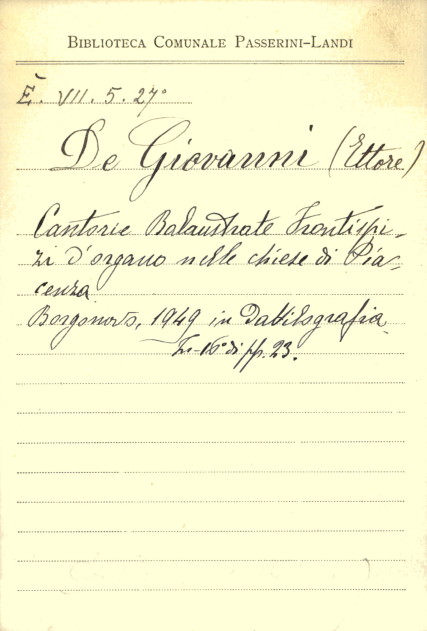 BIBLIOTECA COMUNALE PASSERINI-LANDI
È. VII. 5. 27°
De Giovanni (Ettore)
Cantorie Balaustrate Frontispi-
zi d'organo nelle chiese di Pia-
cenza
Borgonovo, 1949 in Dattilografia
In-16° di pp. 23.